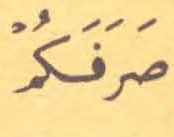 صَرَفَكُمْ